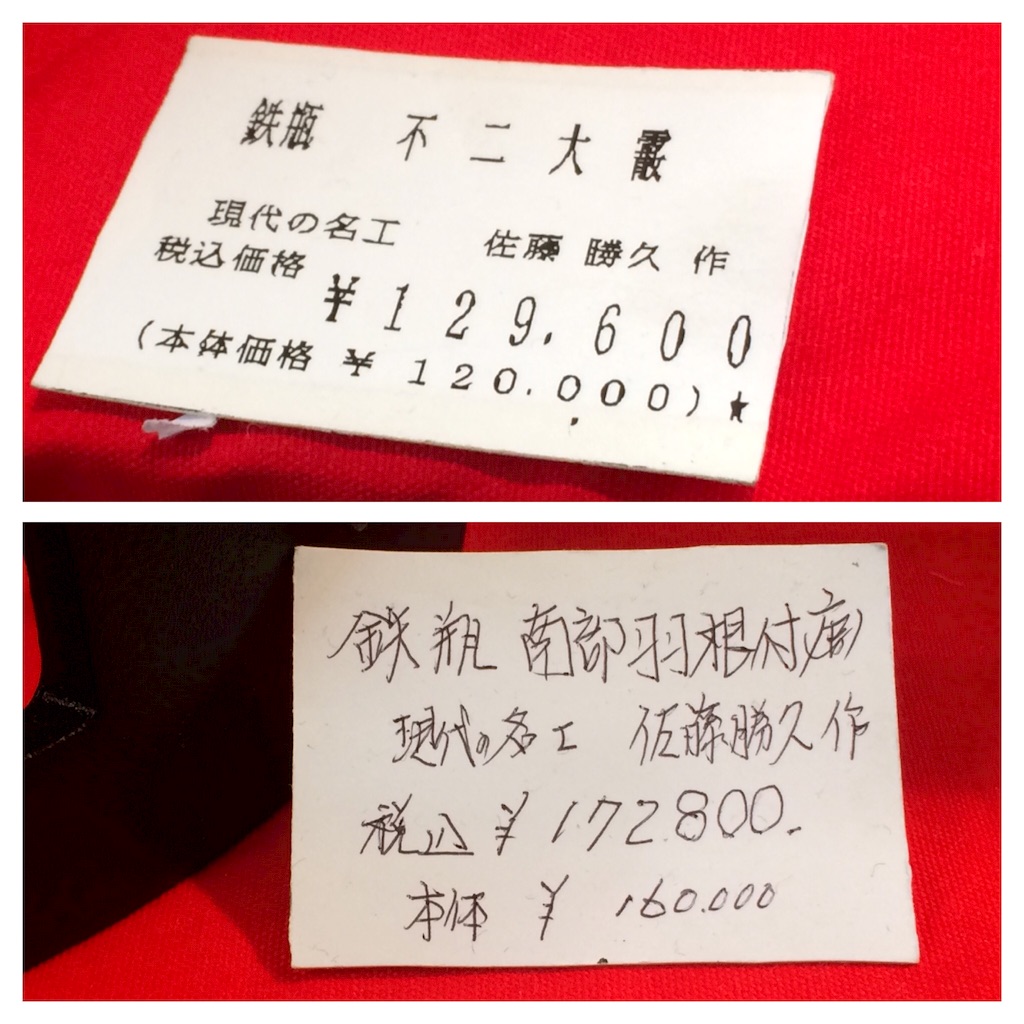 鉄瓶 不二大霰
現代の名工 佐藤 勝久 作
税込価格 ¥129.600
(本体価格 ¥ 120.000)★
鉄瓶 南部羽根付
現代の名工 佐藤勝久作
税込 ¥172800.
本体 ¥ 160.000